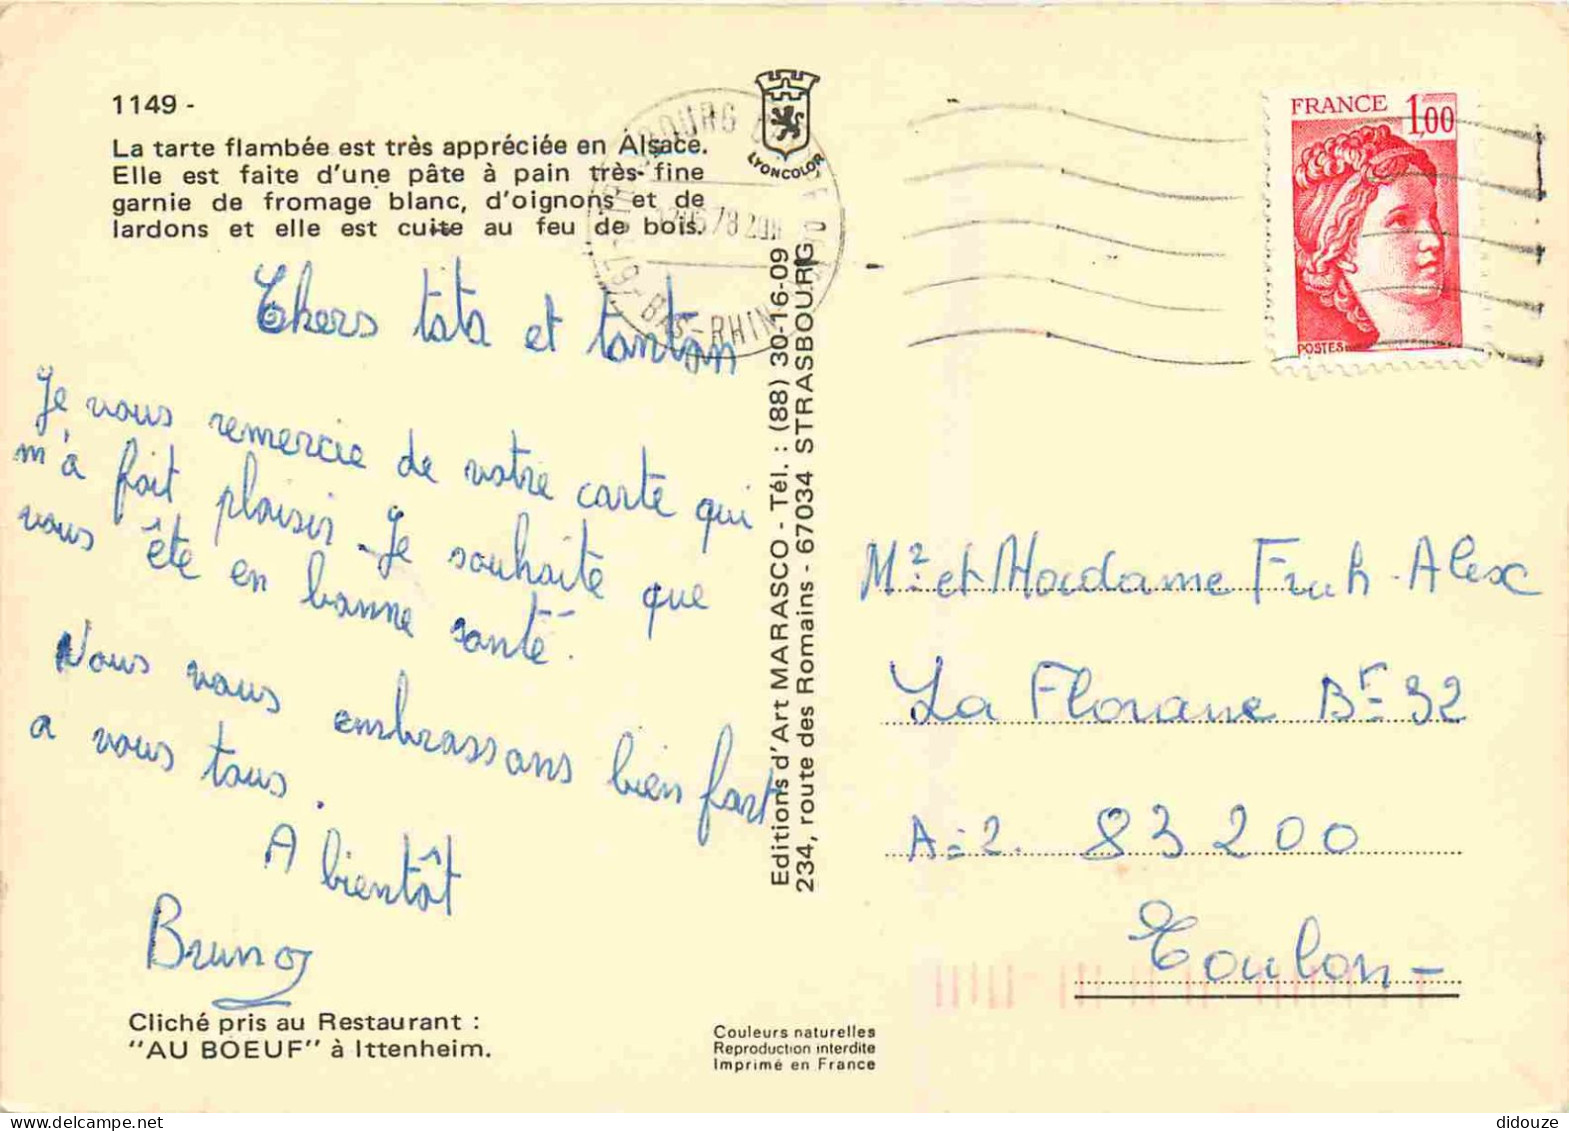 1149 -
La tarte flambée est très appréciée en Alsace.
Elle est faite d'une pâte à pain très fine
garnie de fromage blanc, d'oignons et de
lardons et elle est cuite au feu de bois.
LYONCOLOR
67 - BAS-RHIN
FRANCE 1,00
POSTES
Chers tata et tonton
Je vous remercie de votre carte qui
m'a fait plaisir. Je souhaite que
vous ête en bonne santé.
Nous vous embrassons bien fort
a vous tous.
A bientôt
Bruno
Cliché pris au Restaurant :
"AU BOEUF" à Ittenheim.
Editions d'Art MARASCO - Tél. : (88) 30-16-09
234, route des Romains - 67034 STRASBOURG
Couleurs naturelles
Reproduction interdite
Imprimé en France
Mr et Madame Fruh - Alex
La Florane Bt 32
A=2. 83200
Toulon -
didouze